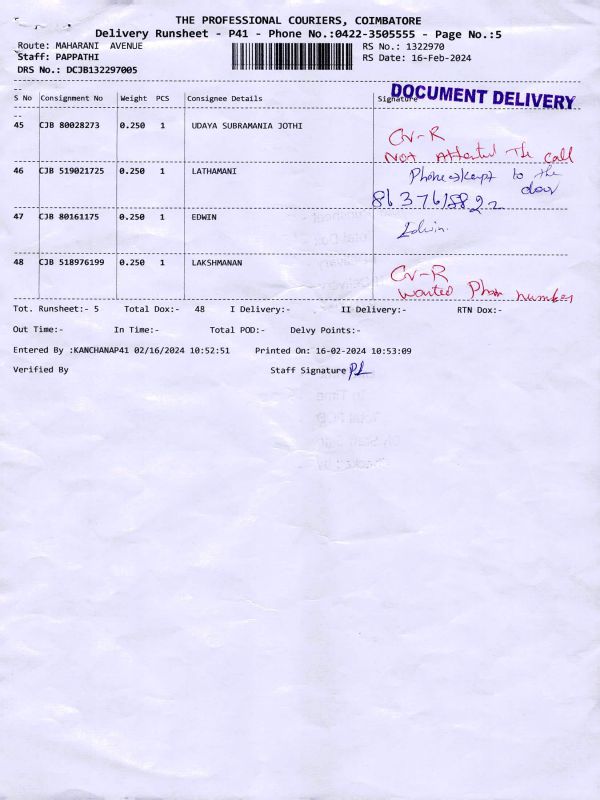 THE PROFESSIONAL COURIERS, COIMBATORE
Delivery Runsheet - P41 - Phone No.:0422-3505555 - Page No.:5
Route: MAHARANI AVENUE RS No.: 1322970
Staff: PAPPATHI RS Date: 16-Feb-2024
DRS No.: DCJB132297005
DOCUMENT DELIVERY
S No Consignment No Weight PCS Consignee Details Signature
45 CJB 80028273 0.250 1 UDAYA SUBRAMANIA JOTHI
CN-R
Not Attented The Call
46 CJB 519021725 0.250 1 LATHAMANI
Phone kept to the
door
8637615822
47 CJB 80161175 0.250 1 EDWIN Edwin.
48 CJB 518976199 0.250 1 LAKSHMANAN
CN-R
Wanted Phon number
Tot. Runsheet:- 5 Total Dox:- 48 I Delivery:- II Delivery:- RTN Dox:-
Out Time:- In Time:- Total POD:- Delvy Points:-
Entered By :KANCHANAP41 02/16/2024 10:52:51 Printed On: 16-02-2024 10:53:09
Verified By Staff Signature